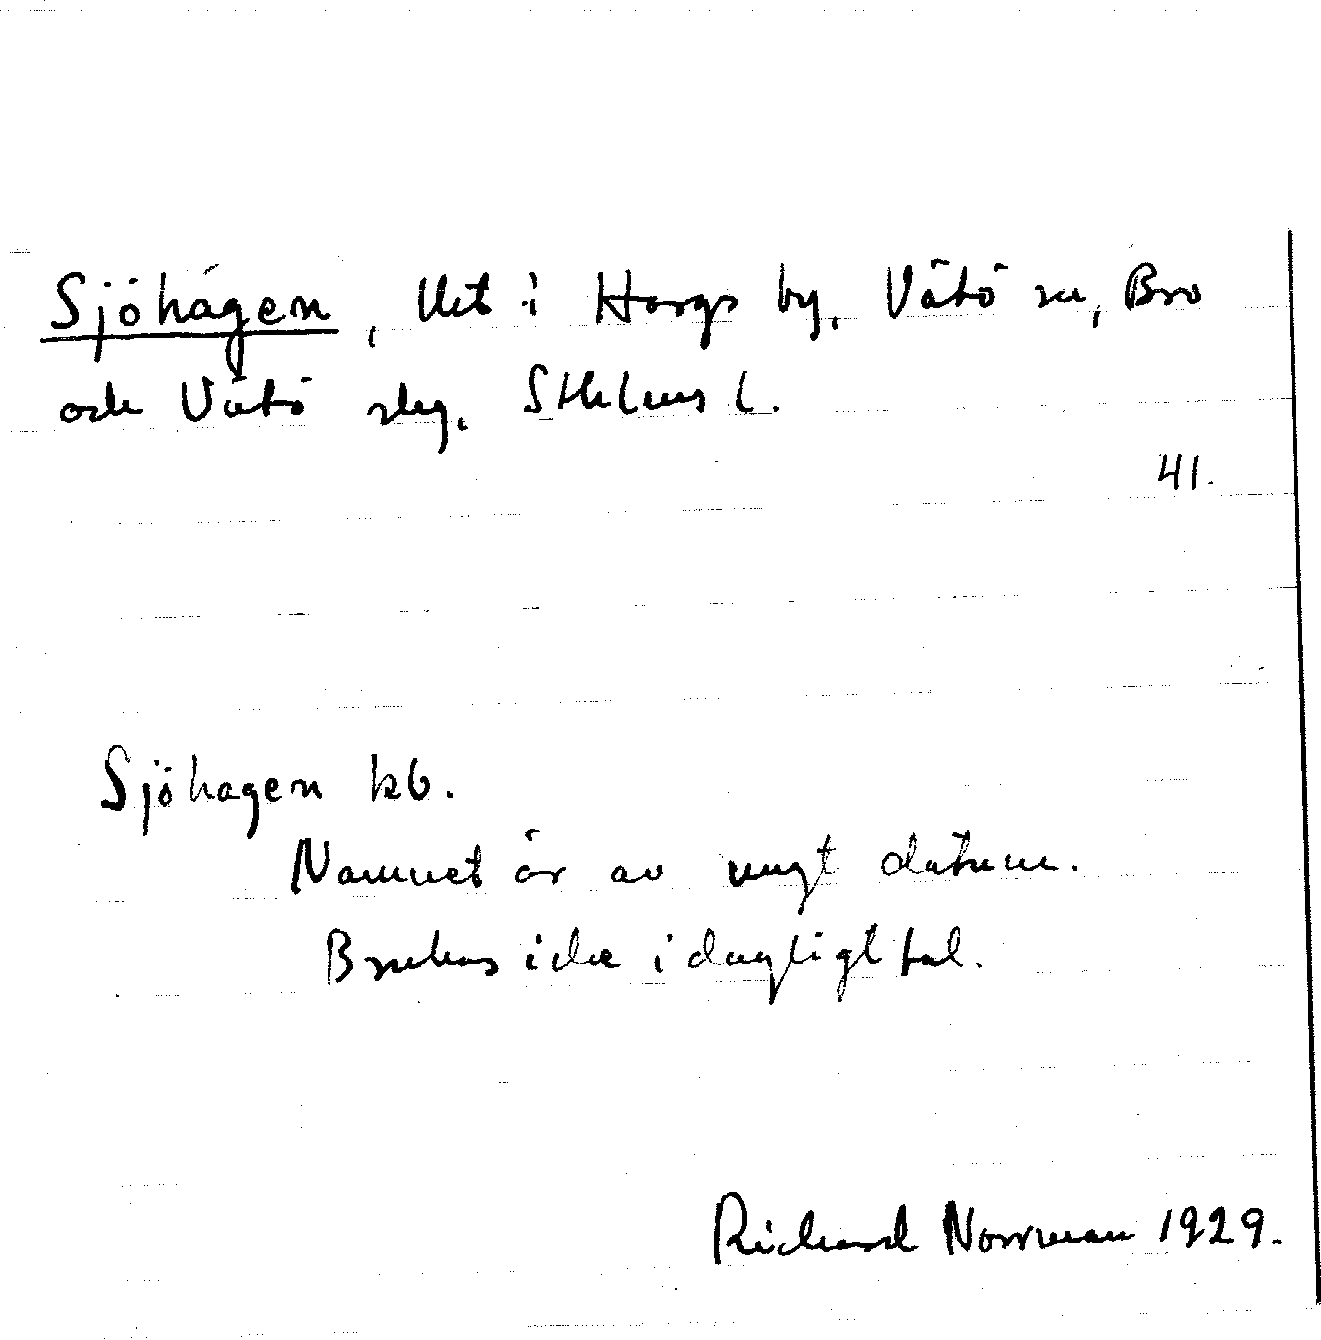 Sjöhagen, lht i Hargs by, Vätö sn, Bro
och Vätö slg, Sthlms l.
41.
Sjöhagen kb.
Namnet är av ungt datum.
Brukas icke i dagligt tal.
Richard Norrman 1929.